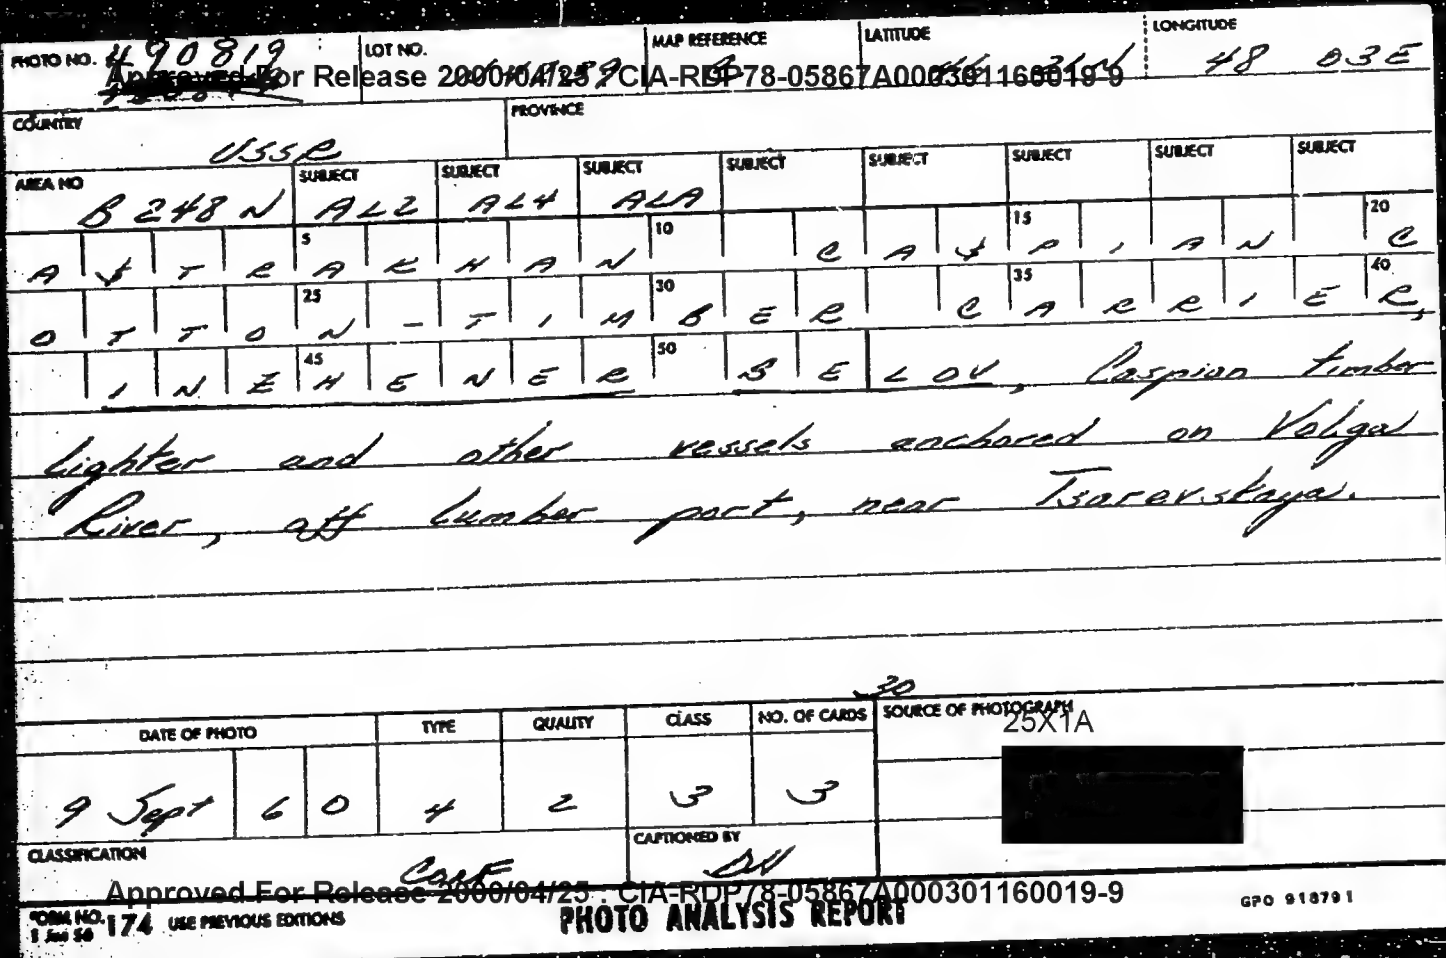 PHOTO NO. 490819 LOT NO. MAP REFERENCE LATITUDE LONGITUDE 48 03E
Approved For Release 2000/04/25 : CIA-RDP78-05867A000301160019-9
COUNTRY USSR PROVINCE
AREA NO B248N SUBJECT AL2 SUBJECT AL4 SUBJECT ALA SUBJECT SUBJECT SUBJECT SUBJECT SUBJECT
5 10 15 20
ASTRAKHAN CASPIAN C
25 30 35 40
OTTON-TIMBER CARRIER,
45 50
INZHENER BELOV, Caspian timber
lighter and other vessels anchored on Volga
River, off lumber port, near Tsarevskaya.
30
DATE OF PHOTO TYPE QUALITY CLASS NO. OF CARDS SOURCE OF PHOTOGRAPH
25X1A
9 Sept 60 4 2 3 3
CLASSIFICATION Conf CAPTIONED BY
Approved For Release 2000/04/25 : CIA-RDP78-05867A000301160019-9
FORM NO. 174 USE PREVIOUS EDITIONS PHOTO ANALYSIS REPORT GPO 918791
1 Jan 56